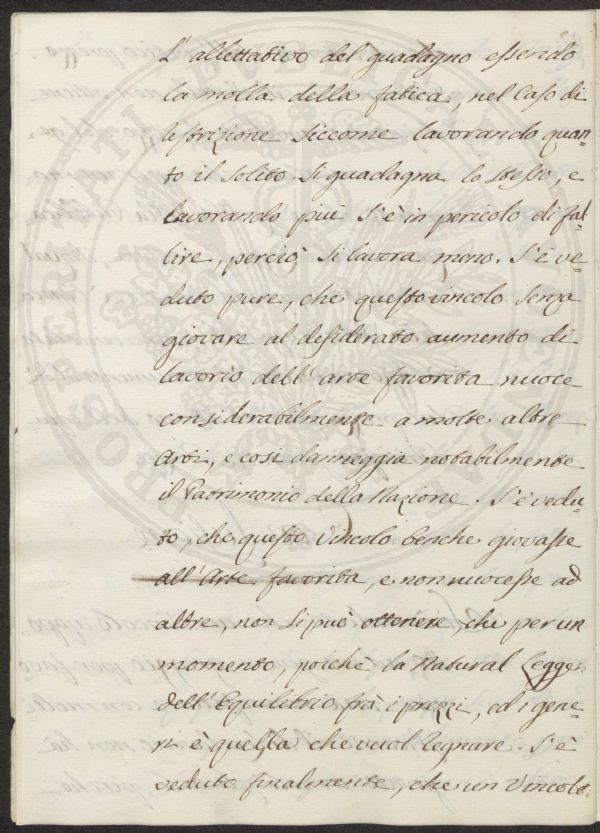 L'allettativo del guadagno essendo
la molla della fabica, nel Caso di
restrizione siccome lavorando quan=
to il solito si guadagna lo stesso, e
lavorando più s'è in pericolo di fal=
lire, perciò si lavora meno. S'è ve=
duto pure, che questo vincolo senza
giovare al desiderato aumento di
lavorio dell'arte favorita nuoce
considerabilmente a molte altre
Arti, e così danneggia notabilmente
il Patrimonio della Nazione. S'è vedu=
to, che questo Vincolo benche giovasse
all'Arte favorita, e non nuocesse ad
altre, non si può ottenere, che per un
momento, poiche la Natural Legge
dell'Equilibrio frà i prezzi, ed i gene=
ri è quella che vuol regnare. S'è
veduto finalmente, che un Vincolo